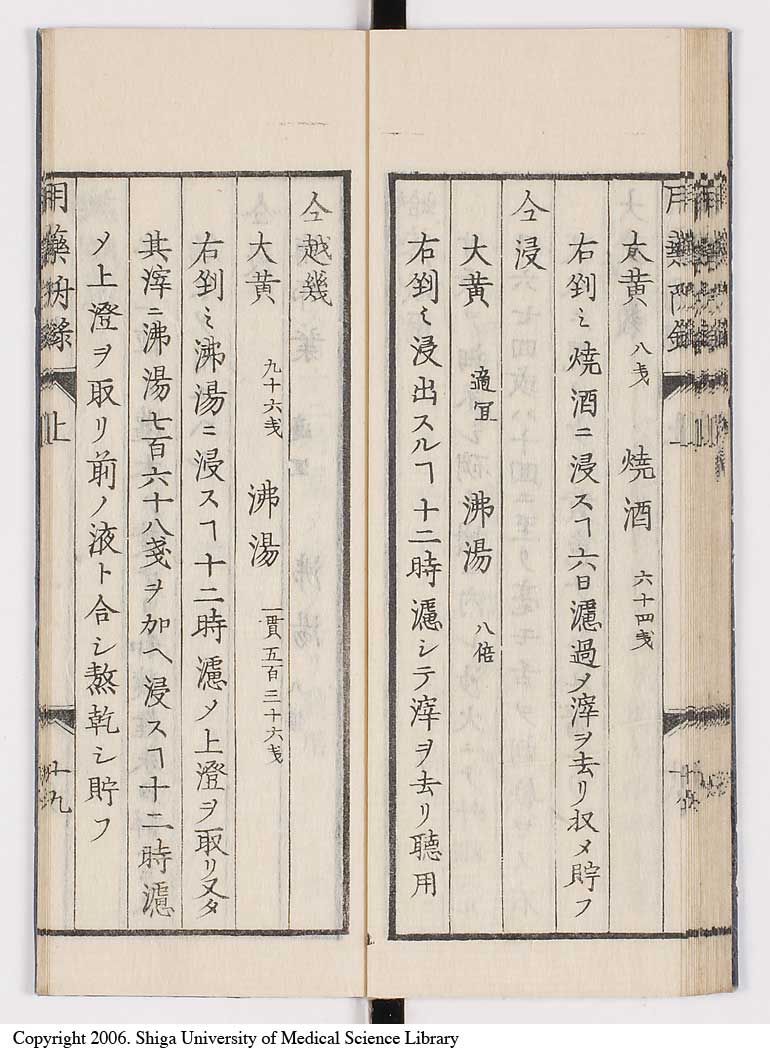 大黄 八戔 焼酒 六十四戔
右剉ミ焼酒ニ浸スヿ六日濾過メ滓ヲ去リ収メ貯フ
仝浸
大黄 適冝 沸湯 八倍
右剉ミ浸出スルヿ十二時濾シテ滓ヲ去リ聴用
仝越幾
大黄 九十六戔 沸湯 一貫五百三十六戔
右剉ミ沸湯ニ浸スヿ十二時濾メ上澄ヲ取リ又タ
其滓ニ沸湯七百六十八戔ヲ加ヘ浸スヿ十二時濾
メ上澄ヲ取リ前ノ液ト合シ熬乾シ貯フ
用藥 上 十九
Copyright 2006. Shiga University of Medical Science Library